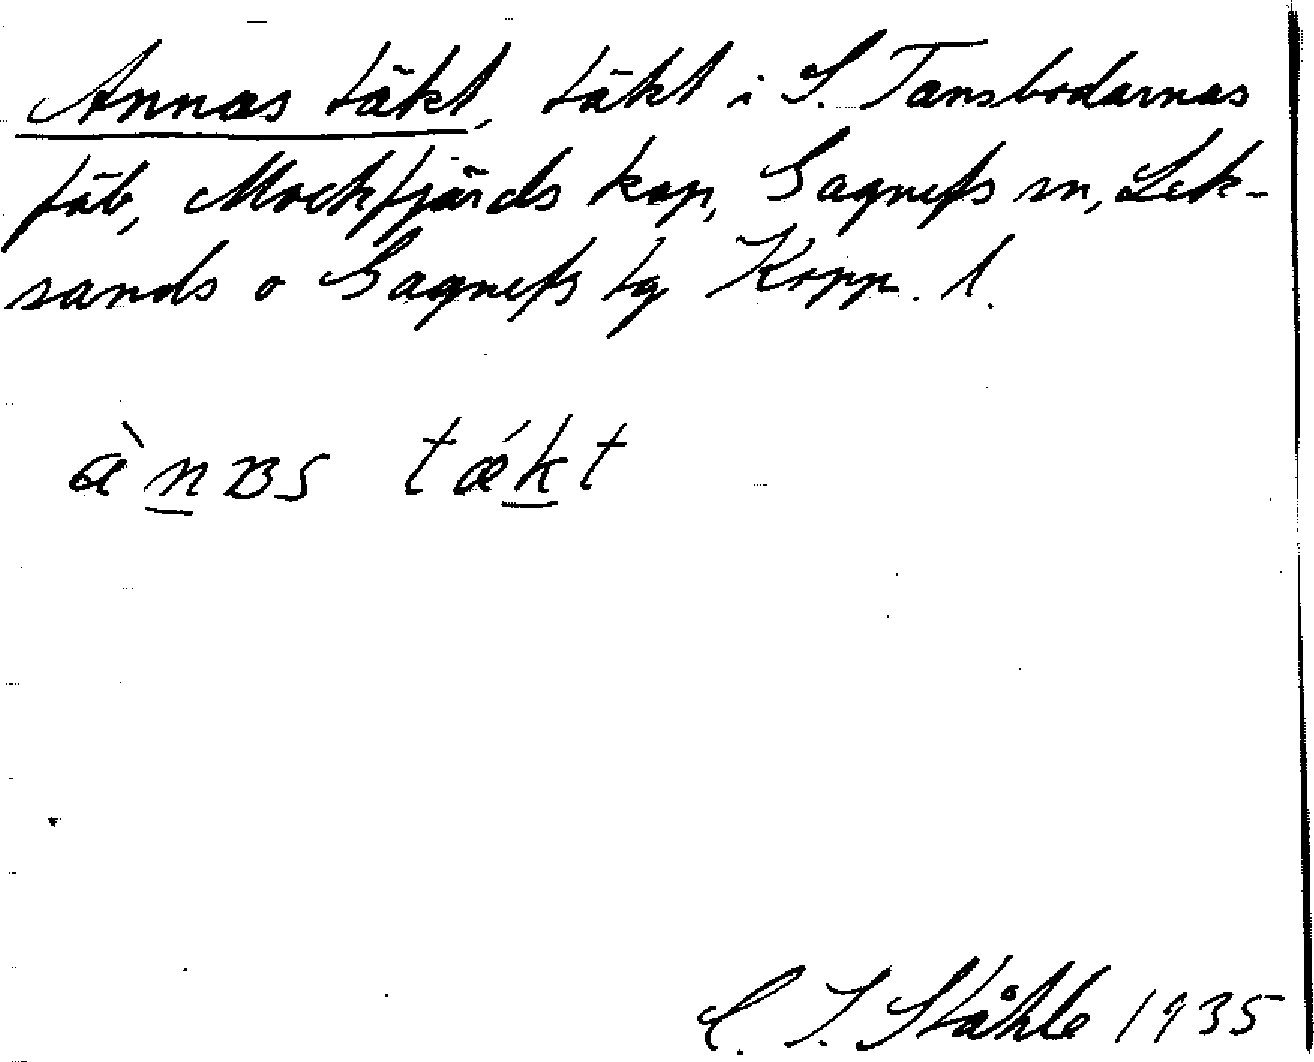 Annas täkt, täkt i S. Tansbodarnas
fäb, Mockfjärds kap, Gagnefs sn, Lek-
sands o Gagnefs tg Kopp. l.
ànɐs tǽkt
C. I. Ståhle 1935